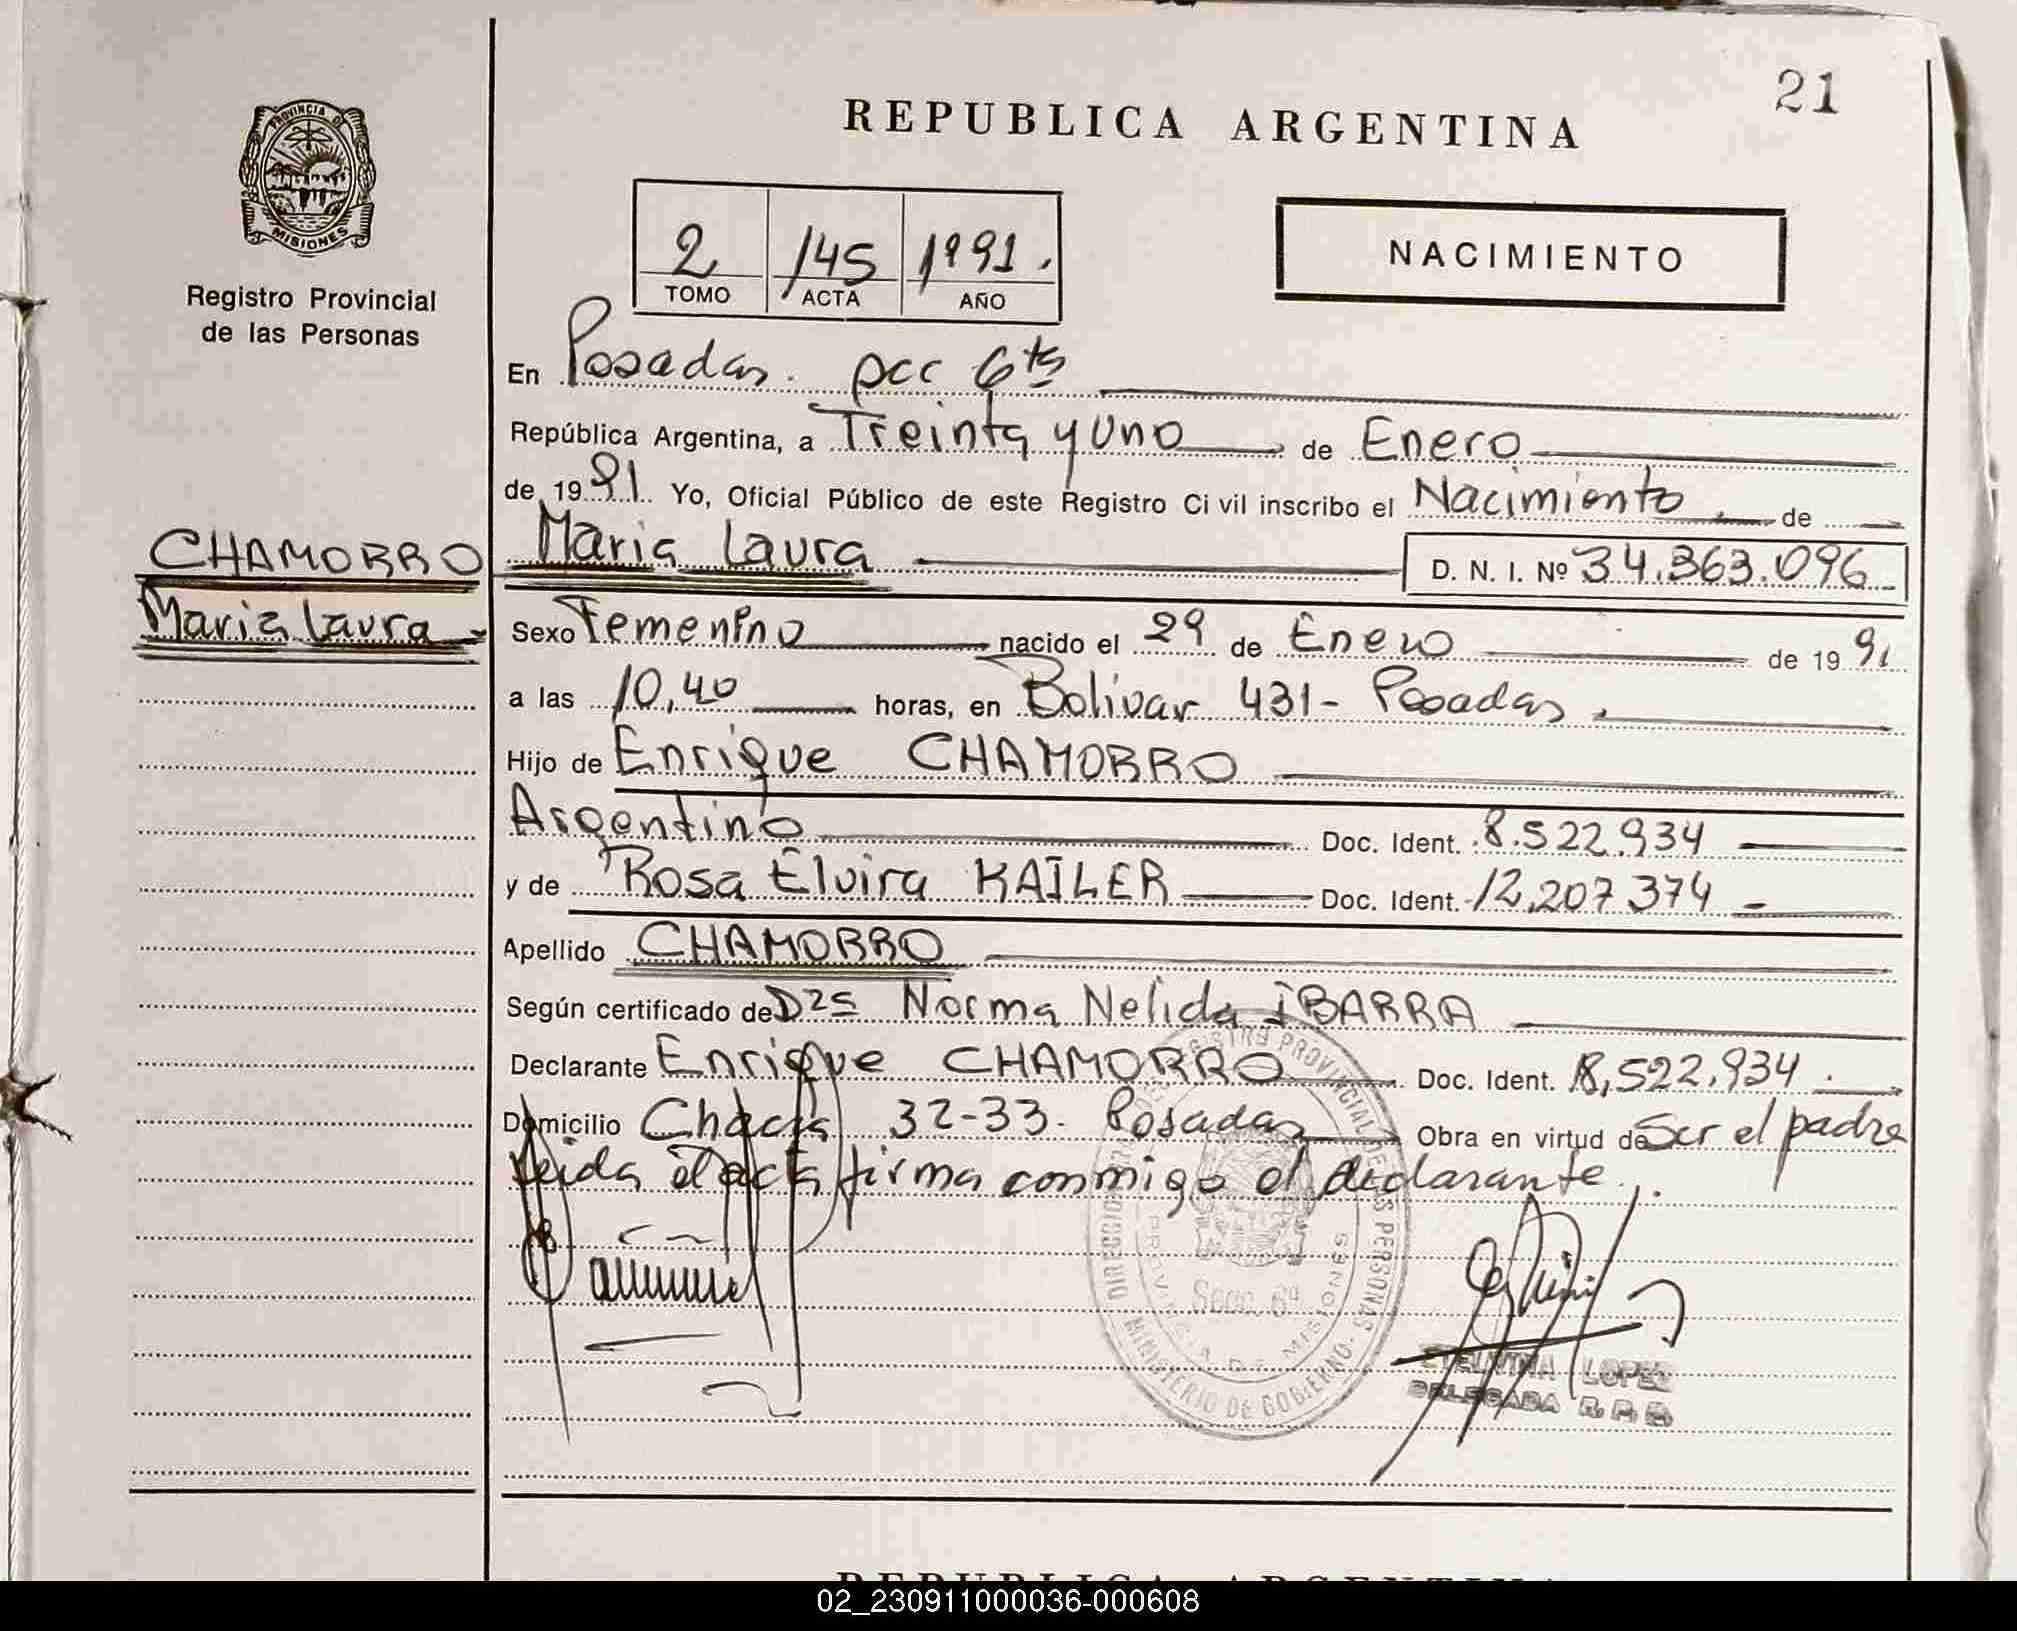 21
REPUBLICA ARGENTINA
PROVINCIA DE
MISIONES
Registro Provincial
de las Personas
2 145 1991.
TOMO ACTA AÑO
NACIMIENTO
En Posadas. pcc 6ta
República Argentina, a Treinta y Uno de Enero
de 1991 Yo, Oficial Público de este Registro Civil inscribo el Nacimiento de
CHAMORRO Maria Laura D. N. I. Nº 34.363.096
Maria Laura
Sexo Femenino nacido el 29 de Enero de 1991
a las 10,40 horas, en Bolivar 431 - Posadas.
Hijo de Enrique CHAMORRO
Argentino Doc. Ident. 8.522.934
y de Rosa Elvira KAILER Doc. Ident. 12.207.374
Apellido CHAMORRO
Según certificado de Dra Norma Nelida IBARRA
Declarante Enrique CHAMORRO Doc. Ident. 8,522,934.
Domicilio Chacra 32-33. Posadas Obra en virtud de Ser el padre
Leida el acta firma conmigo el declarante.
PROVINCIAL DE LAS PERSONAS
MINISTERIO DE GOBIERNO
PROVINCIA DE MISIONES
Secc. 6ª
ETELVINA LOPEZ
DELEGADA R. P. P.
REPUBLICA ARGENTINA
02_230911000036-000608